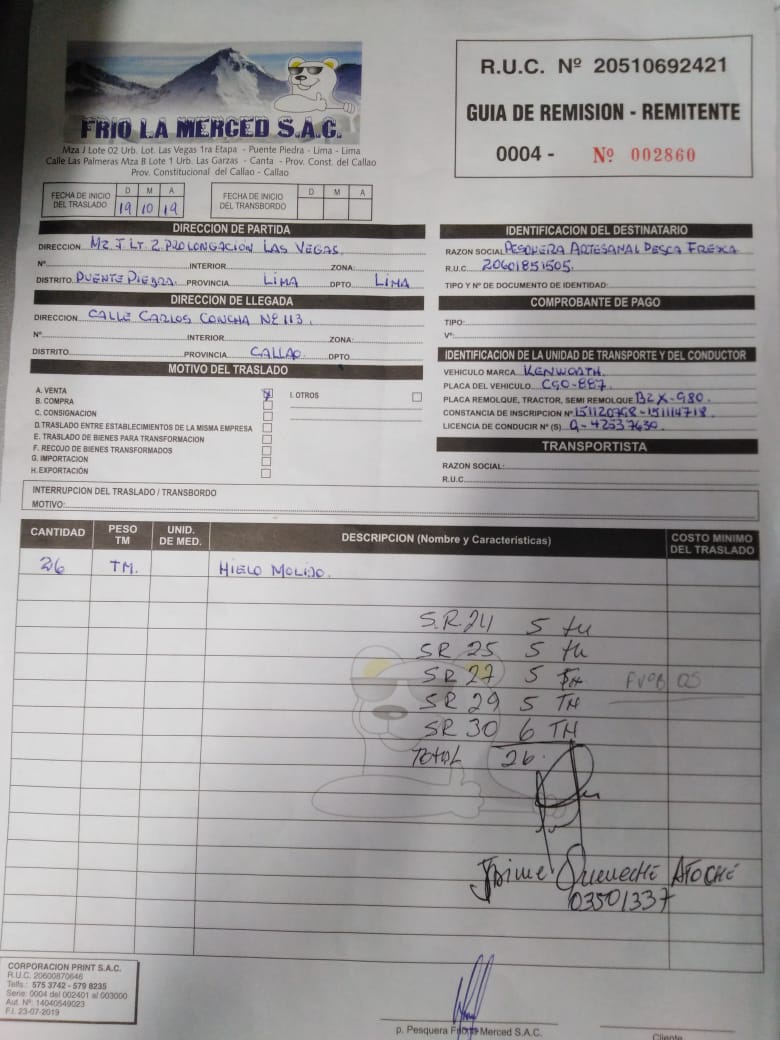 FRIO LA MERCED S.A.C.
Mza J Lote 02 Urb. Lot. Las Vegas 1ra Etapa - Puente Piedra - Lima - Lima
Calle Las Palmeras Mza B Lote 1 Urb. Las Garzas - Canta - Prov. Const. del Callao
Prov. Constitucional del Callao - Callao
R.U.C. Nº 20510692421
GUIA DE REMISION - REMITENTE
0004 - Nº 002860
FECHA DE INICIO DEL TRASLADO D M A 19 10 19
FECHA DE INICIO DEL TRANSBORDO D M A
DIRECCION DE PARTIDA
DIRECCION MZ J LT. 2 PROLONGACION LAS VEGAS.
Nº INTERIOR ZONA:
DISTRITO PUENTE PIEDRA. PROVINCIA LIMA DPTO LIMA
DIRECCION DE LLEGADA
DIRECCION CALLE CARLOS CONCHA Nº 113.
Nº INTERIOR ZONA:
DISTRITO PROVINCIA CALLAO DPTO
MOTIVO DEL TRASLADO
A. VENTA
B. COMPRA
C. CONSIGNACION
D. TRASLADO ENTRE ESTABLECIMIENTOS DE LA MISMA EMPRESA
E. TRASLADO DE BIENES PARA TRANSFORMACION
F. RECOJO DE BIENES TRANSFORMADOS
G. IMPORTACION
H. EXPORTACIÓN
I. OTROS
IDENTIFICACION DEL DESTINATARIO
RAZON SOCIAL PESQUERA ARTESANAL PESCA FRESCA
R.U.C. 20601851505.
TIPO Y Nº DE DOCUMENTO DE IDENTIDAD:
COMPROBANTE DE PAGO
TIPO:
Vº:
IDENTIFICACION DE LA UNIDAD DE TRANSPORTE Y DEL CONDUCTOR
VEHICULO MARCA KENWORTH.
PLACA DEL VEHICULO C9O-887.
PLACA REMOLQUE, TRACTOR, SEMI REMOLQUE B2X-980.
CONSTANCIA DE INSCRIPCION Nº 151120798-151114718.
LICENCIA DE CONDUCIR Nº (S) Q-42537630.
TRANSPORTISTA
RAZON SOCIAL:
R.U.C.
INTERRUPCION DEL TRASLADO / TRANSBORDO
MOTIVO:
CANTIDAD PESO TM UNID. DE MED. DESCRIPCION (Nombre y Características) COSTO MINIMO DEL TRASLADO
26 TM. HIELO MOLIDO.
S.R.24 5 tu
SR 25 5 tu
SR 27 5 TH
SR 29 5 TH
SR 30 6 TH
TOTAL 26.
Jaime ATOCHE
03501337
CORPORACION PRINT S.A.C.
R.U.C. 20600870646
Telfs.: 575 3742 - 579 8235
Serie: 0004 del 002401 al 003000
Aut. Nº: 14040549023
F.I. 23-07-2019
p. Pesquera Merced S.A.C.
Cliente